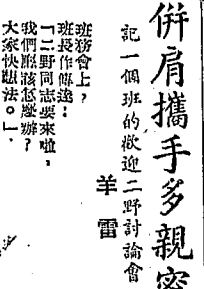 併肩攜手多親密
記一個班的歡迎二野討論會
羊雷
班務會上，
班長作傳達：
「二野同志要來啦，
我們應該怎麼辦？
大家快題法。」